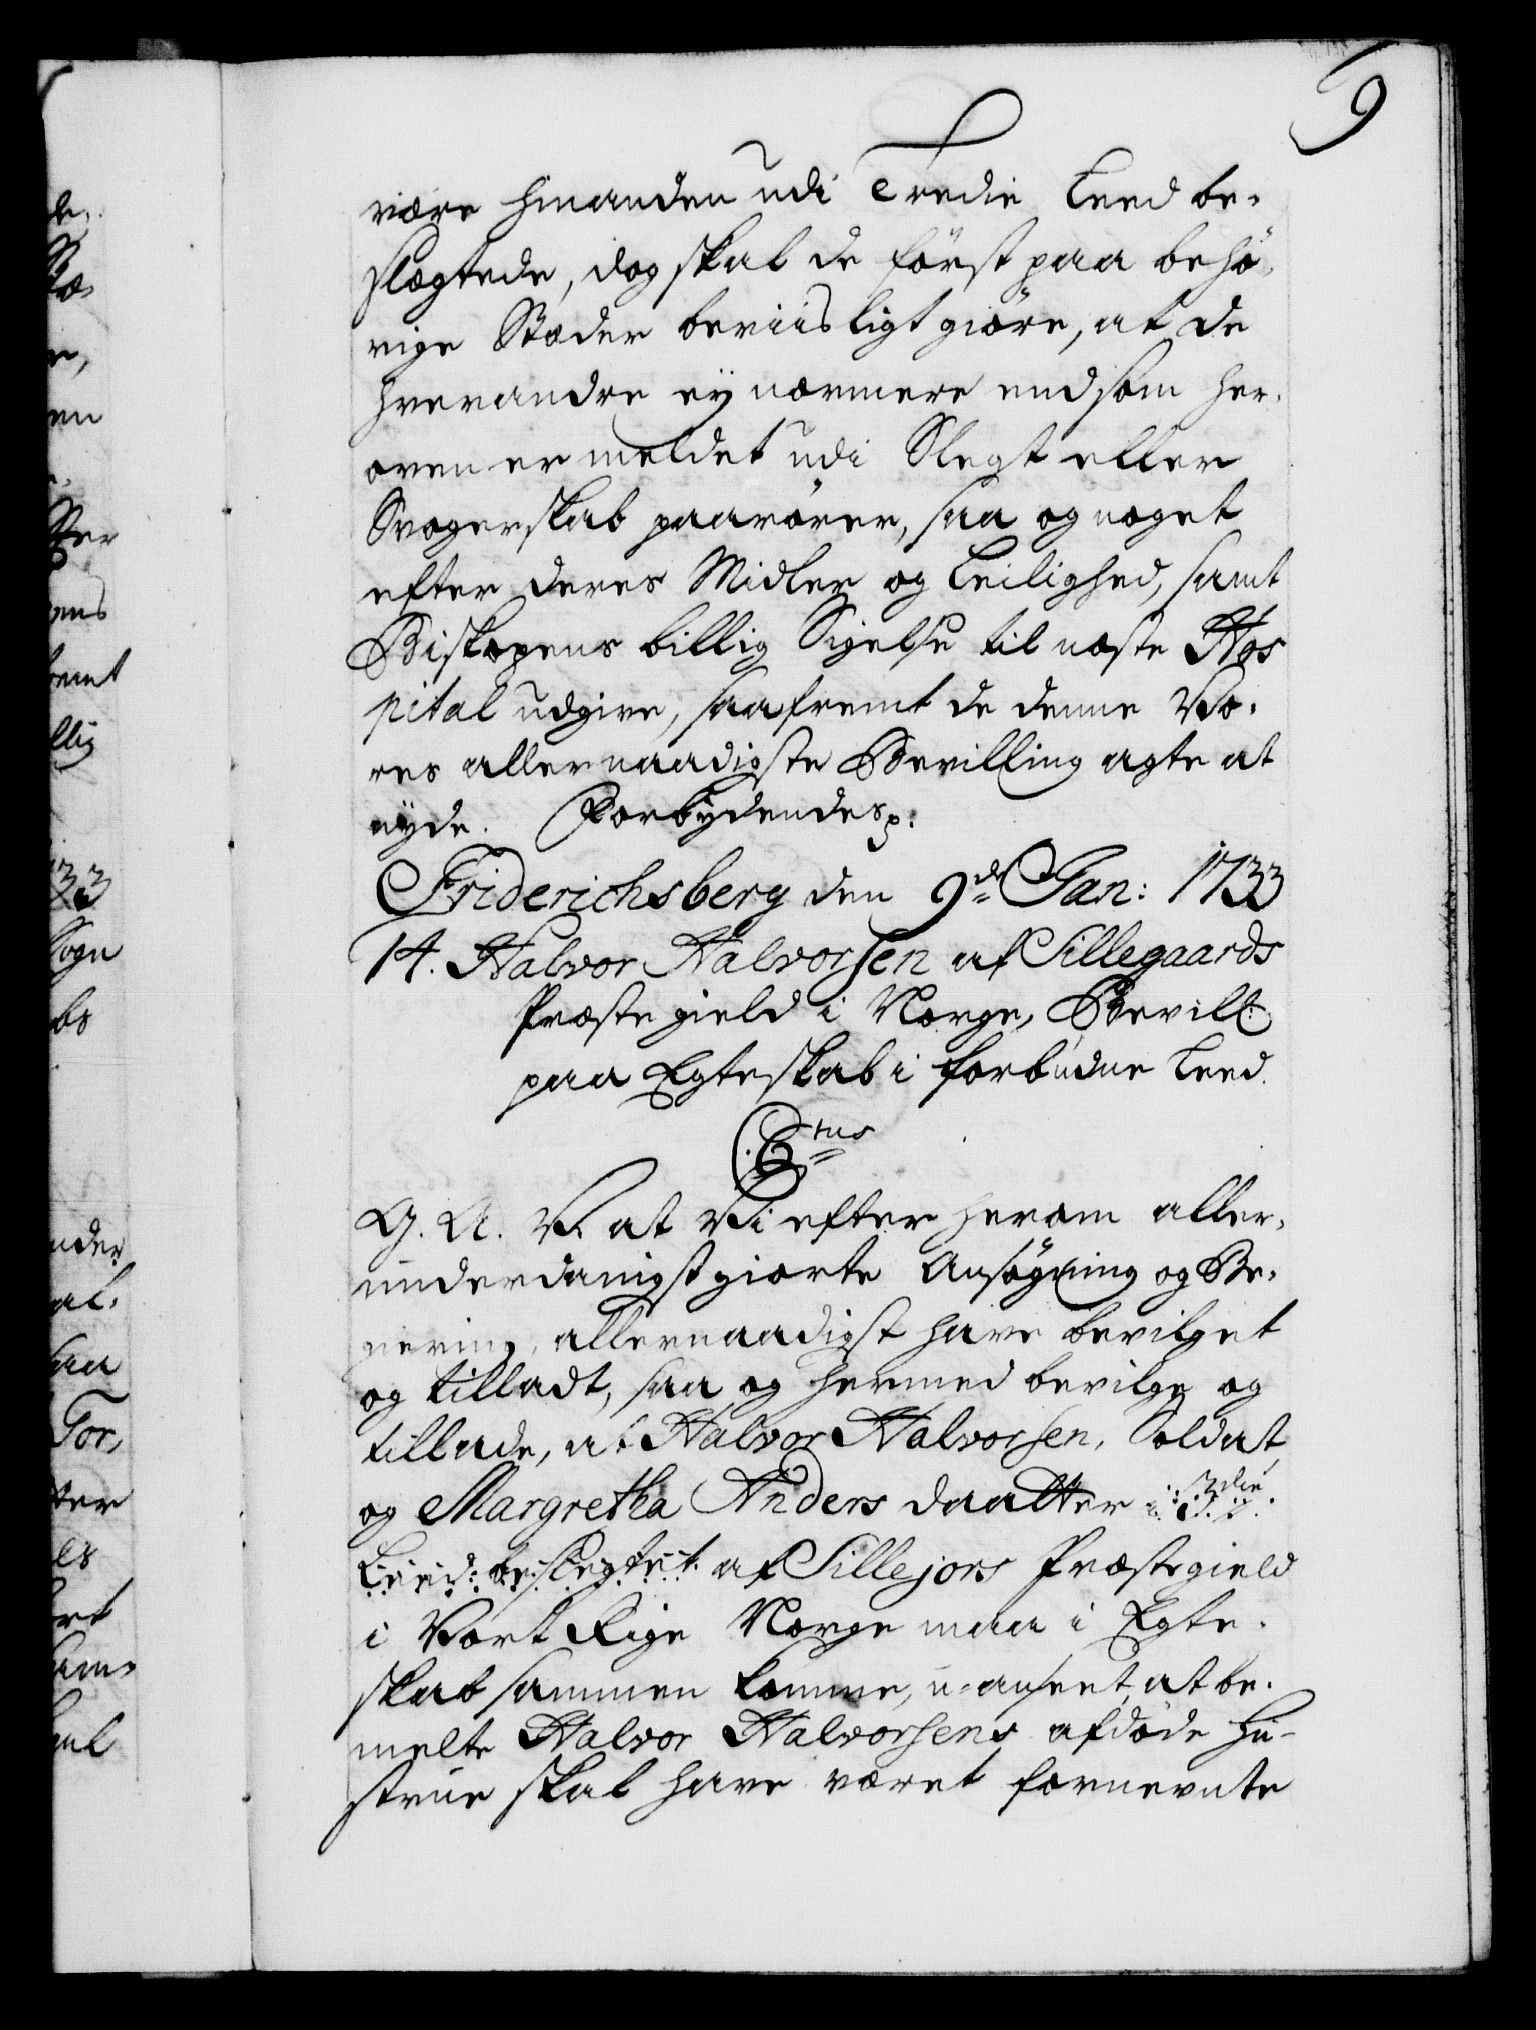 9
være hinanden udi Tredie Leed be-
slægtede, dog skal de først paa behø-
rige Stæder beviisligt giøre, at de
hverandre ey nærmere end som her-
oven er meldet udi Slegt eller
Svogerskab paarører, saa og noget
efter deres Midler og Leilighed, samt
Biskopens billig Sigelse til næste Hos
pital udgive, saafremt de denne Vo-
res allernaadigste Bevilling agte at
nyde. Forbydendes p:
Friderichsberg den 9de Jan: 1733
14. Halvor Halvorsen af Sillegaards
Præstegield i Norge, Bevill:
paa Egteskab i forbudne Leed.
C 6tus
G. A. V. at Vi efter herom aller-
underdanigst giorte Ansøgning og Be-
giering, allernaadigst have bevilget
og tilladt, saa og hermed bevilge og
tillade, at Halvor Halvorsen, Soldat,
og Margretha Anders daatter i 3die
Leed beslegtet af Sillejors Præstegield
i Vort Rige Norge maa i Egte-
skab sammen komme, u-anseet, at be-
melte Halvor Halvorsens afdøde Hu-
strue skal have været fornevnte